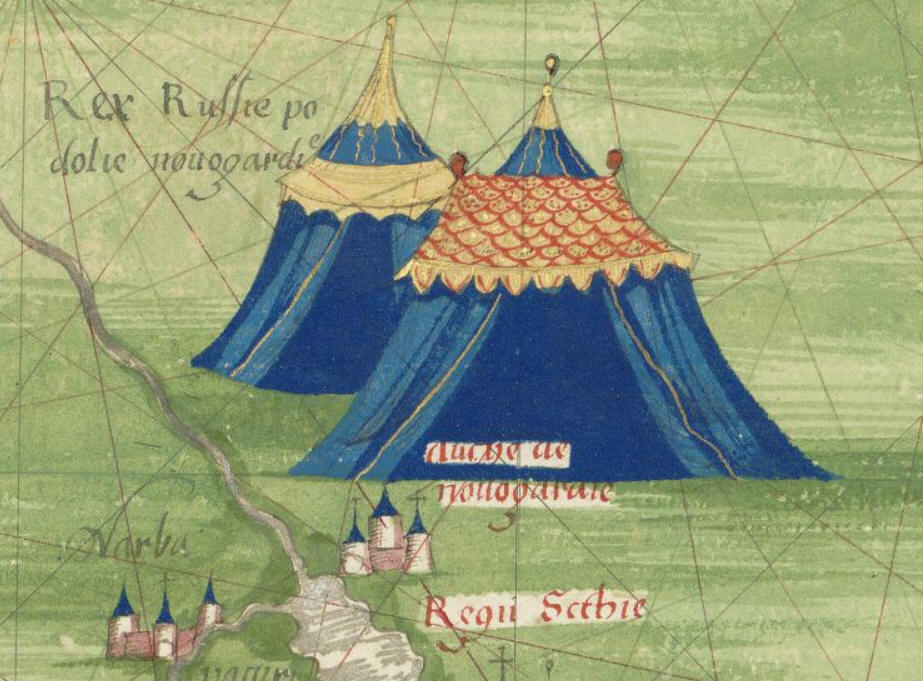 Rex Russie po
dolie nouogardie
duché de
nouogardie
Narba
Regnu Scthie